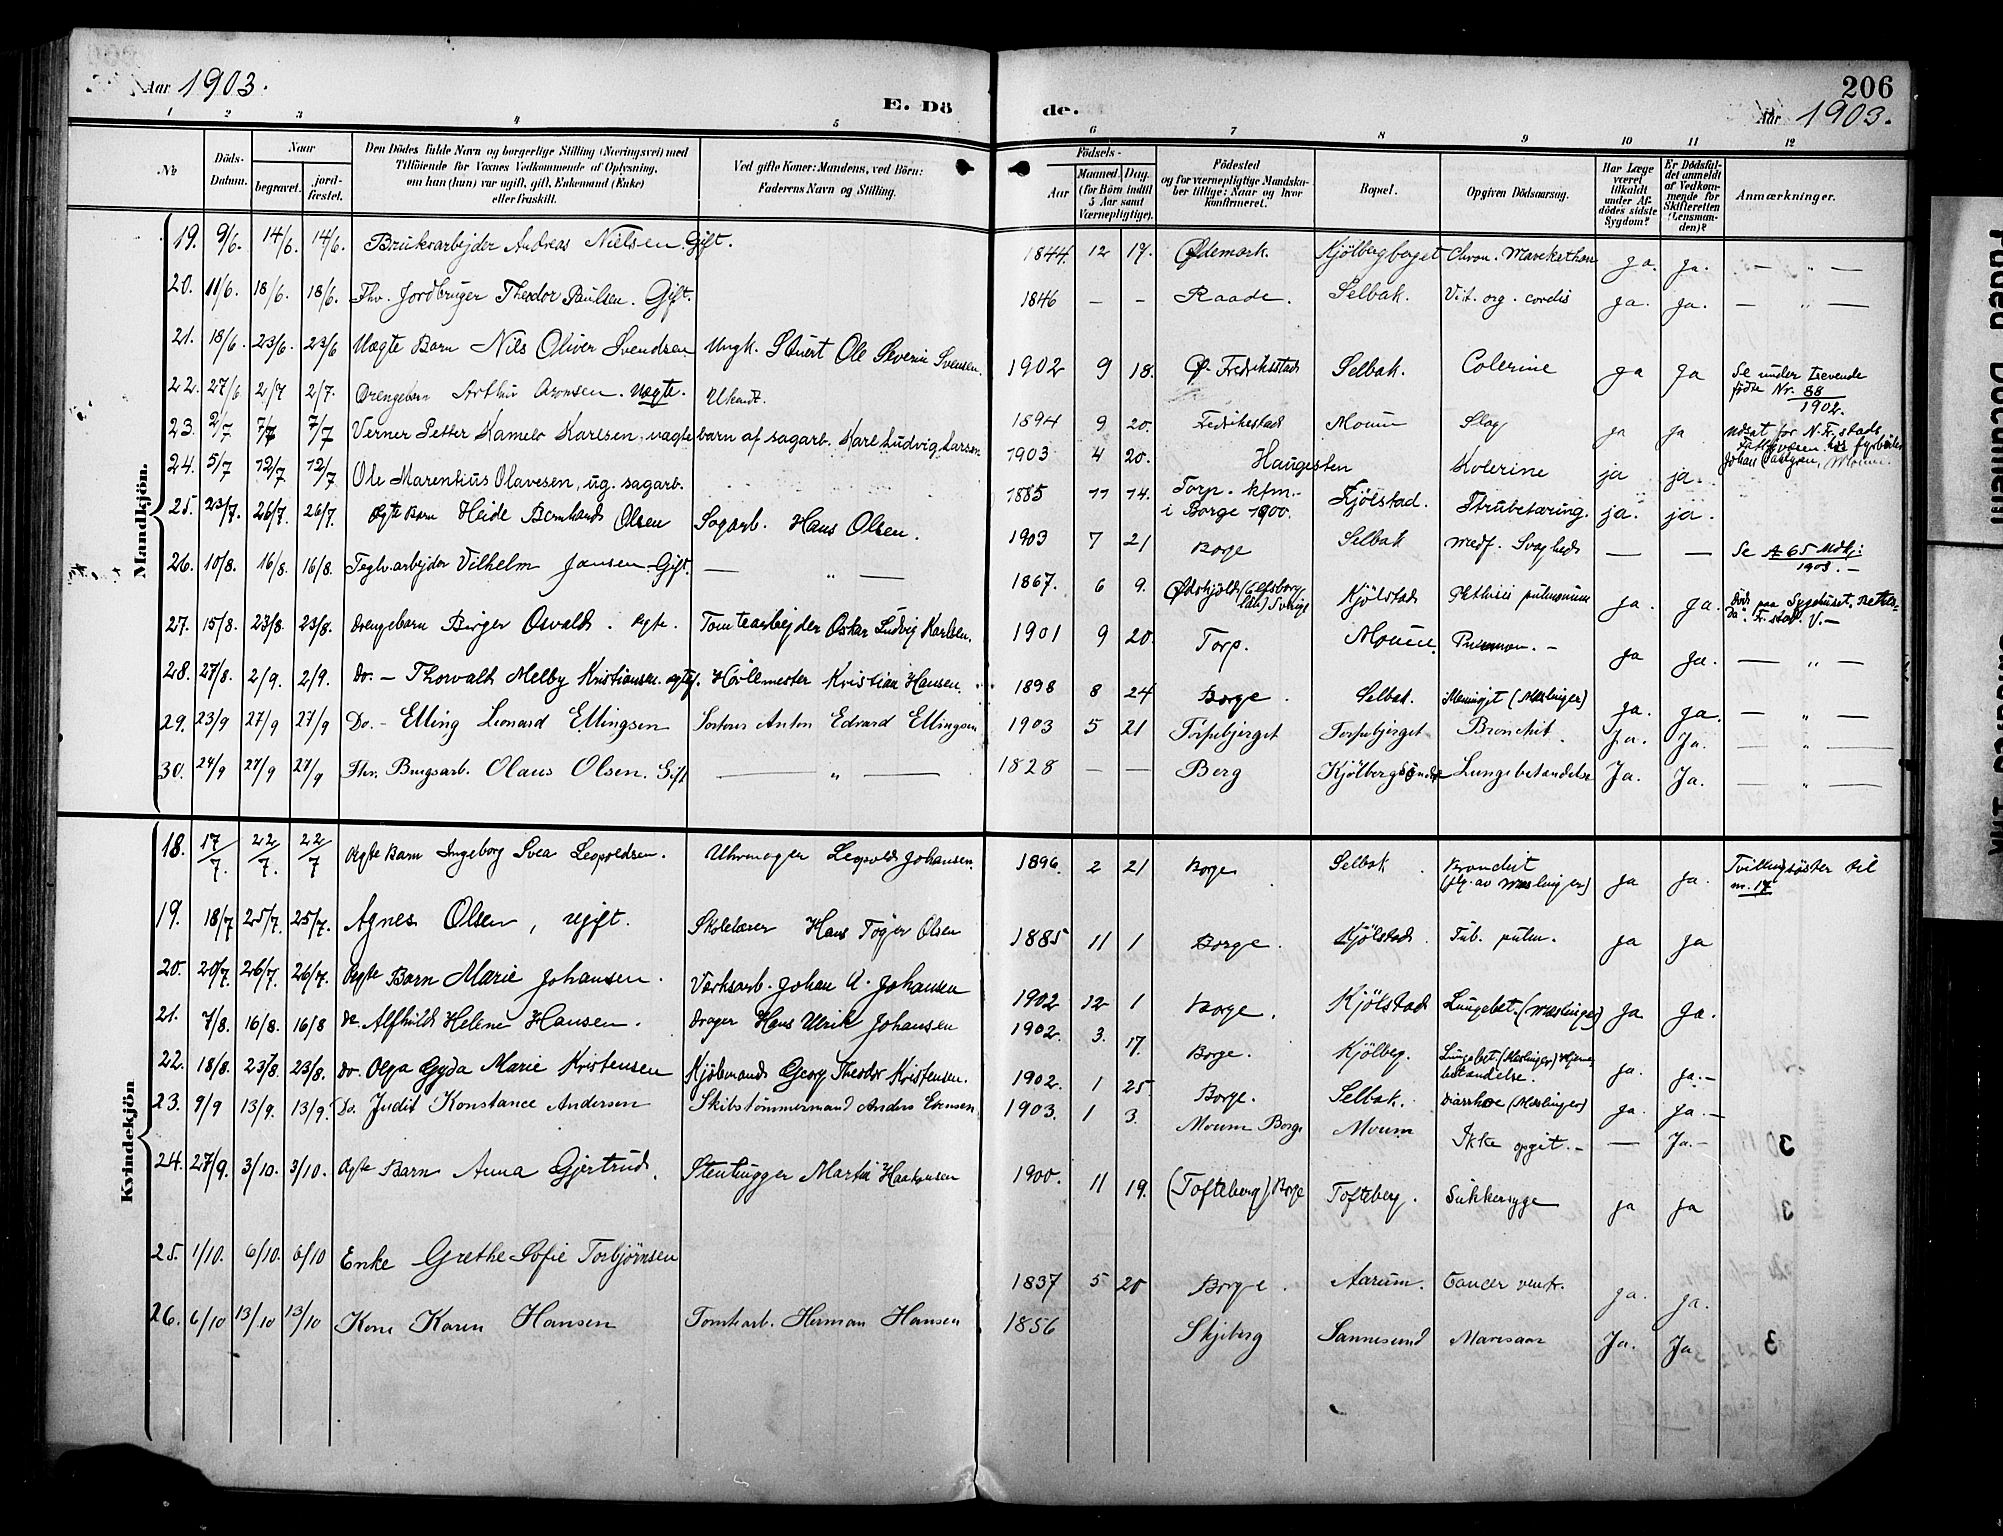 Aar 1903.
E. Dö
de.
206
Aar 1903.
1 2 3 4 5 6 7 8 9 10 11 12
No
Döds-Datum.
Naar
begravet.
jord-fæstet.
Den Dödes fulde Navn og borgerlige Stilling (Næringsvei) med
Tilföiende for Voxnes Vedkommende af Oplysning,
om han (hun) var ugift, gift, Enkemand (Enke)
eller fraskilt.
Ved gifte Koner: Mandens, ved Börn:
Faderens Navn og Stilling.
Födsels-
Aar
Maaned Dag.
(for Börn indtil
5 Aar samt
Værnepligtige).
Födested
og for værnepligtige Mandska-
ber tillige: Naar og hvor
konfirmeret.
Bopæl.
Opgiven Dödsaarsag.
Har Læge
været
tilkaldt
under Af-
dödes sidste
Sygdom?
Er Dödsfal-
det anmeldt
af Vedkom-
mende for
Skifteretten
(Lensman-
den)?
Anmærkninger.
Mandkjön.
19. 9/6. 14/6. 14/6. Bruksarbejder Andreas Nielsen. Gift. 1844. 12 19. Ødemark. Kjölbergberget ja. ja. — „ —
20. 11/6. 18/6. 18/6. Fhv. Jordbruger Theodor Paulsen. Gift. 1846 — — Raade. Selbak. Vit. org. cordis ja. ja. — „ —
21. 18/6. 23/6. 23/6 Uægte Barn Nils Oliver Svendsen Ungk. Stuert Ole Severin Svensen. 1902 9 18. Ø. Fredriksstad Selbak. Colerine ja ja Se under levende
födte Nr. 88
1902.
22. 27/6 2/7 2/7. Drengebarn Arthur Aronsen. Uægte. Ukendt. 1894 9 20. Fredrikestad Moum Slag ja ja Udsat for N. Fr.stads
23. 2/7 7/7 7/7 Verner Petter Kamelo Karlsen, uægte barn af sagarb. Karl Ludvig Larsen 1903 4 20. Haugesten Kolerine ja ja.
24. 5/7 12/7 12/7 Ole Marentius Olavesen, ug. sagarb. 1885 11 14. Torp. kfm.
i Borge 1900. Kjölstad. Strubetæring. ja. ja.
25. 23/7. 26/7. 26/7. Ægte Barn Heide Bernhard Olsen Sagarb. Hans Olsen. 1903 7 21 Borge Selbak Medf. Svaghed — — Se № 65 Mdkj:
1903. —
26. 10/8. 16/8. 16/8. Teglv.arbejder Vilhelm Jansen. Gift. — „ — 1867. 6 9. Ödskjöld (Elfsborg
län) Sverige Kjölstad Phthisis pulmonum ja. ja. Död paa Sygehuset,
Fr.stad. V. —
27. 15/8. 23/8. 23/8. Drengebarn Birger Osvald. ægte. Tomtearbejder Oskar Ludvig Karlsen. 1901 9 20. Torp. Moum. Pneumon. — ja ja. — „ —
28. 27/8. 2/9. 2/9. Do. — Thorvald Melby Kristiansen. ægte. Hövlemester Kristian Hansen. 1898 8 24 Borge. Selbak. Meningit (Meslinger) ja. ja. — „ —
29. 23/9 27/9 27/9 Do. — Elling Leonard Ellingsen Sorterer Anton Edvard Ellingsen 1903 5 21 Torpebjerget Torpebjerget Bronchit. Ja. Ja. — „ —
30. 24/9 27/9 27/9 Fhv. Brugsarb. Olaus Olsen. Gift — „ — 1828 — — Berg Kjölbergsund Lungebetændelse Ja. Ja. — „ —
Kvindekjön
18. 17/7. 22/7. 22/7 Ægte Barn Ingeborg Svea Leopoldsen. Uhrmager Leopold Johansen. 1896. 2 21 Borge Selbak Bronchit
(flg. av meslinger) ja ja. Tvillingsöster til
nr. 17
19. 18/7 25/7. 25/7. Agnes Olsen, ugift. Skolelærer Hans Töger Olsen 1885 11 1 Borge. Kjölstad. Tub. pulm. ja ja
20. 20/7. 26/7. 26/7. Ægte Barn Marie Johansen. Værksarb. Johan A. Johansen 1902 12 1 Borge. Kjölstad Lungebet. (Meslinger) ja ja.
21. 7/8. 16/8. 16/8 do. Alfhild Helene Hansen. Drager Hans Ulrik Johansen 1902. 3. 17. Borge. Kjölberg. Lungebet. (Meslinger) Hjerne-
betændelse. ja. ja. —
22. 18/8. 23/8. 23/8. do. Olga Gyda Marie Kristensen Kjöbmand Georg Theodor Kristensen. 1902. 1 25. Borge. Selbak. Diarrhoe (Meslinger) ja. ja. —
23. 9/9 13/9. 13/9. Do. Judit Konstance Andersen Skibstömmermand Anders Evensen. 1903. 1 3. Moum Borge Moum Ikke opgit. — — Ja. —
24. 27/9. 3/10. 3/10. Ægte Barn Anna Gjertrud. Stenhugger Martin Haakonsen 1900. 11 19. (Tofteberg) Borge Tofteberg. Sukkersyge ja ja
25. 1/10. 6/10. 6/10 Enke Grethe Sofie Torbjörnsen 1837 5 20 Borge. Aarum. Cancer ventr. ja. ja.
26. 6/10 13/10 13/10 Kone Karen Hansen Tomtearb. Herman Hansen 1856 Skjeberg Sannesund Mavesaar Ja. Ja